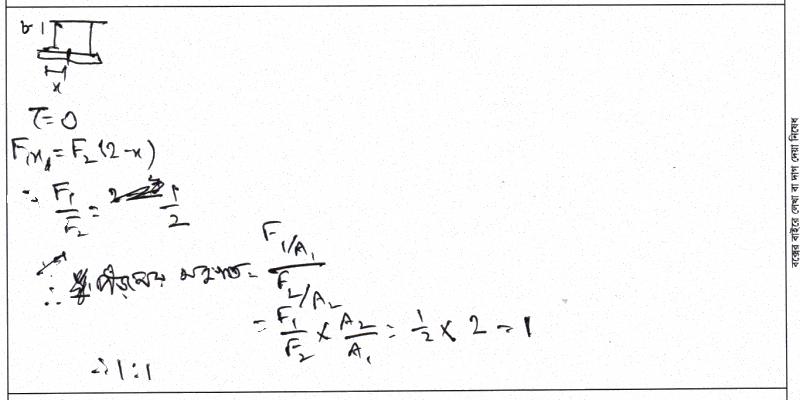 ৮।
x
τ = 0
F₁x₁ = F₂(2-x)
∴ F₁/F₂ = 1/2
∴ পীড়নের অনুপাত = (F₁/A₁)/(F₂/A₂)
= F₁/F₂ × A₂/A₁ = 1/2 × 2 = 1
∴ 1:1
বক্সের বাইরে লেখা বা দাগ দেয়া নিষেধ